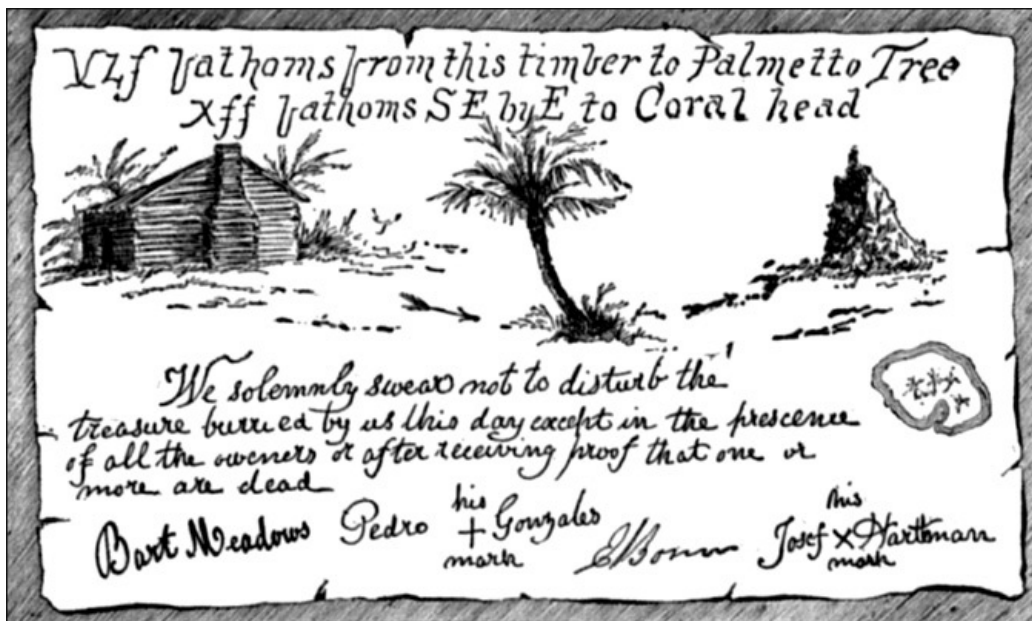 VLf fathoms from this timber to Palmetto Tree
Xff fathoms SE by E to Coral head
We solemnly swear not to disturb the
treasure burried by us this day except in the prescence
of all the owners or after receiving proof that one or
more are dead
Bart Meadows Pedro his + mark Gonzales his Josef X Hartmann mark